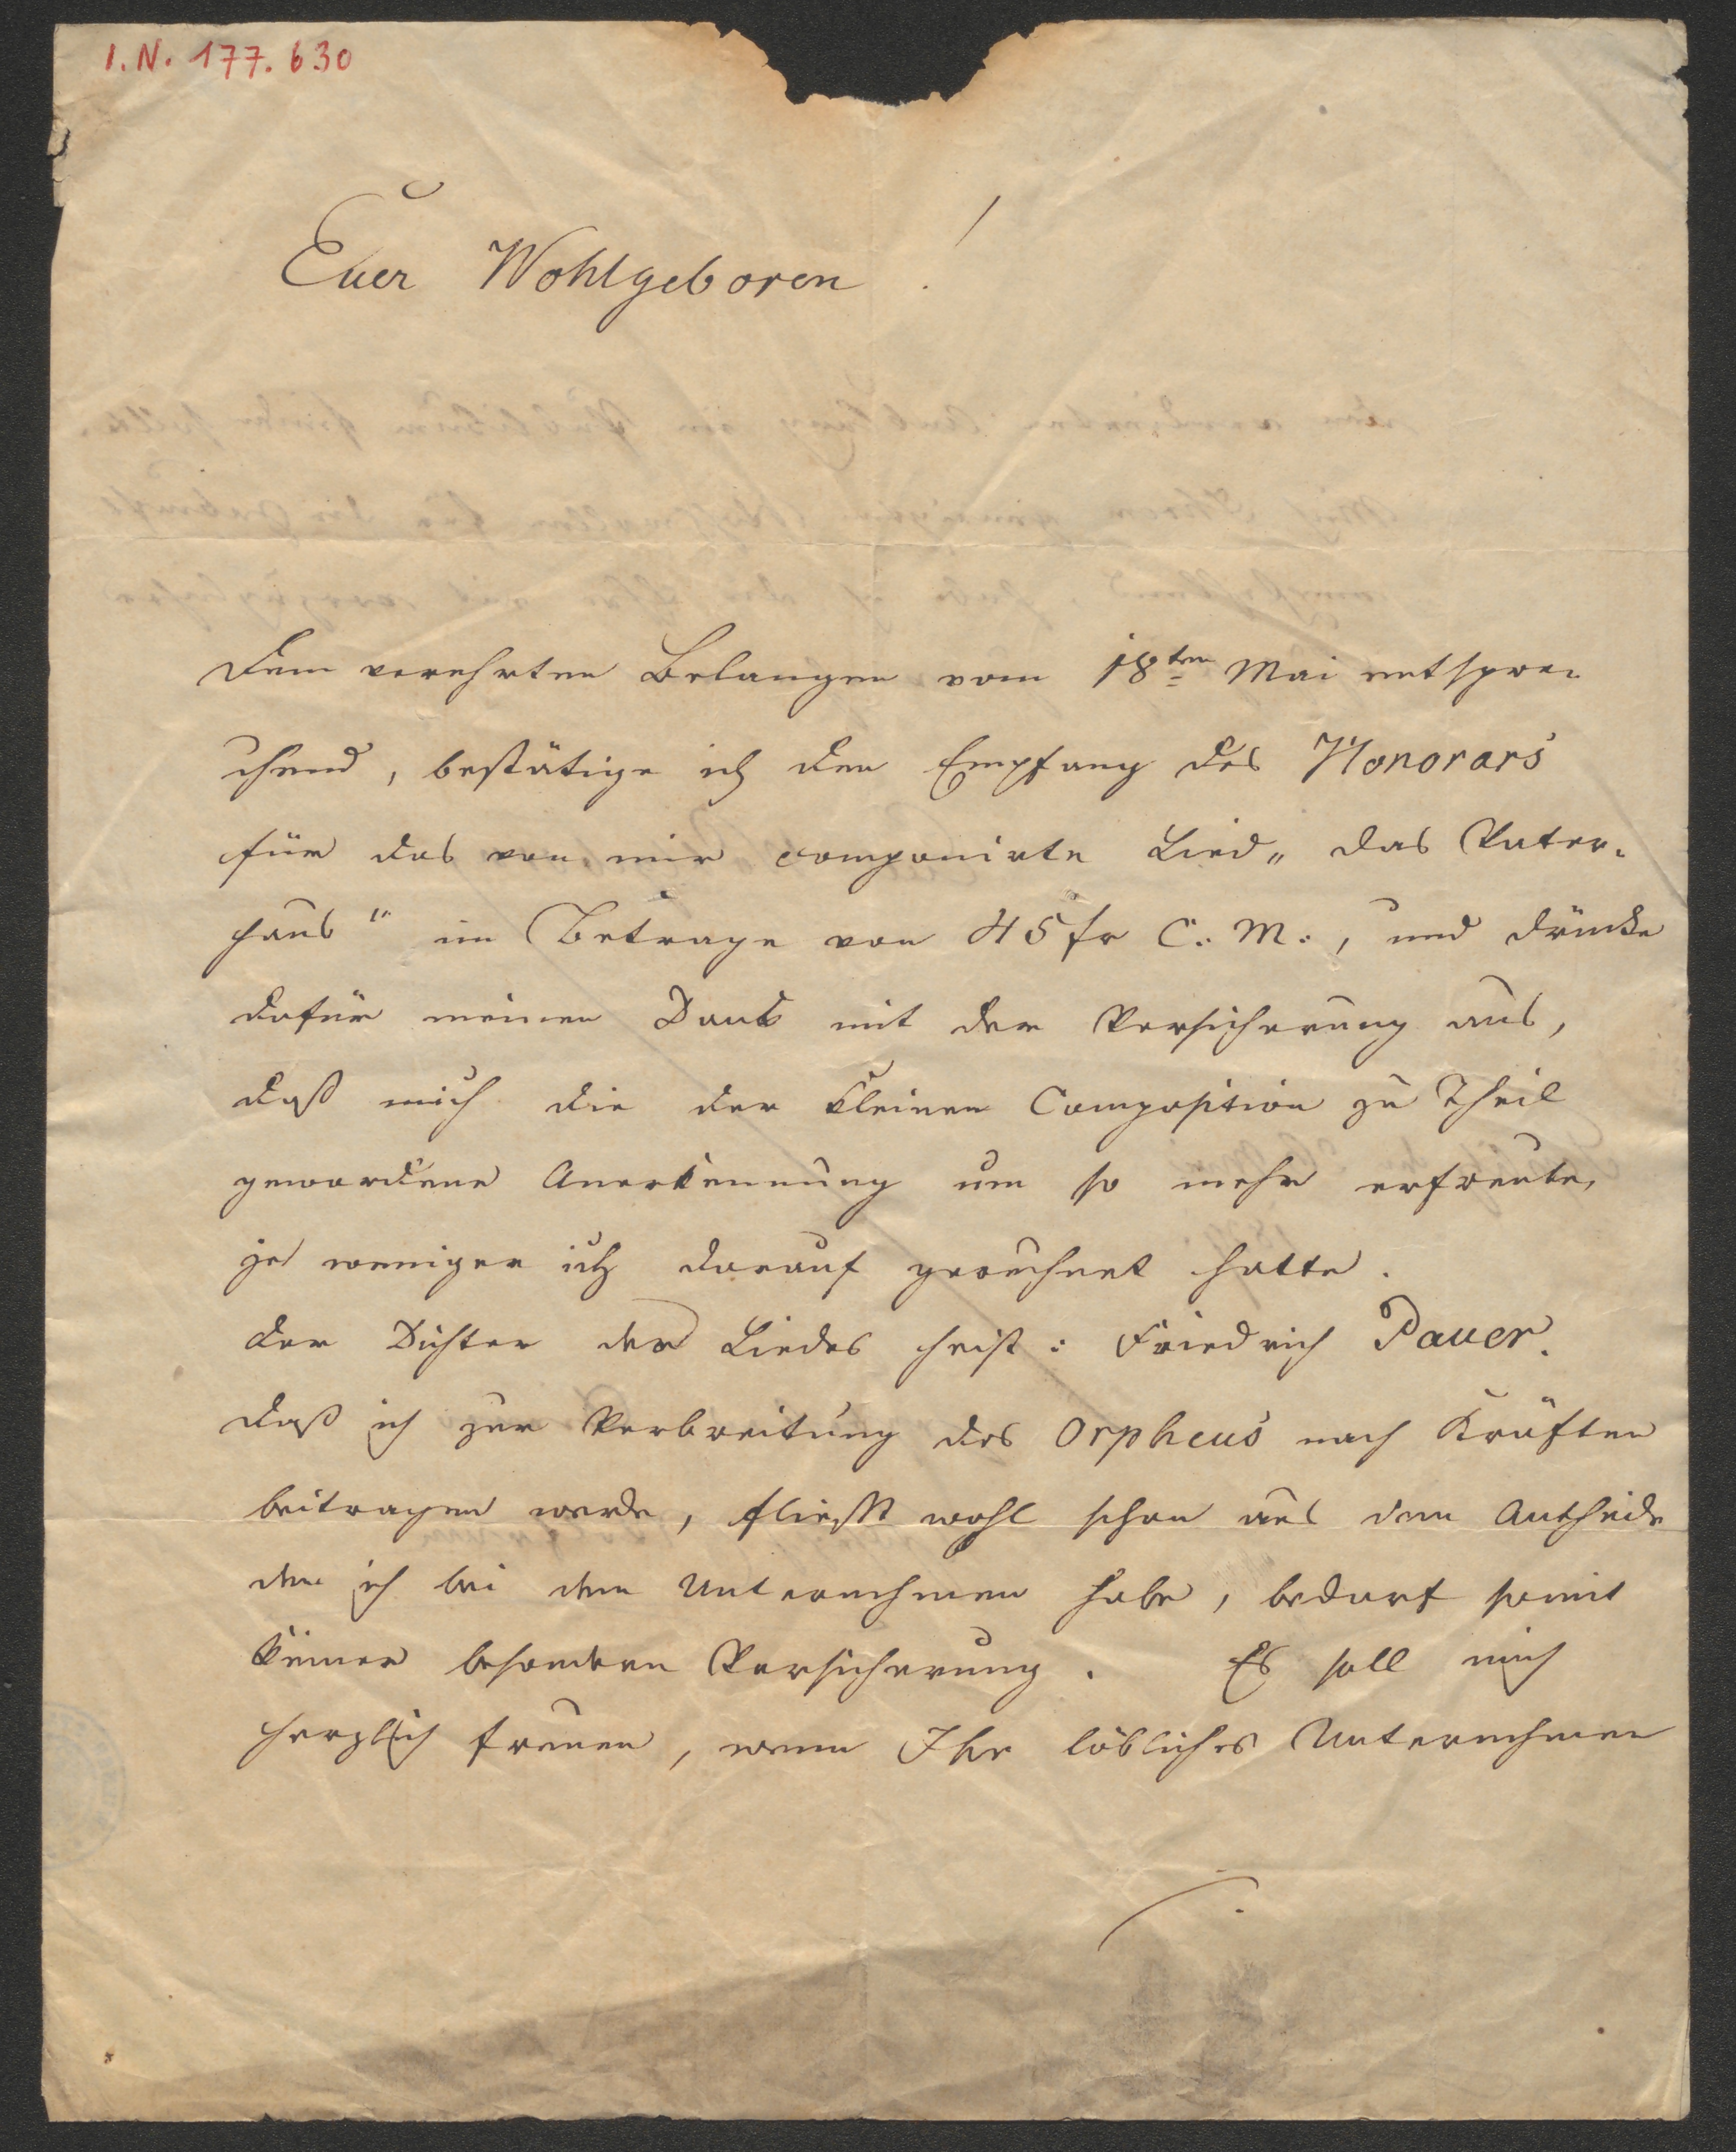 I.N. 177.630
Euer Wohlgeboren !
Dem verehrten Belangen vom 18ten Mai entspre-
chend, bestätige ich den Empfang des Honorars
für das von mir componirte Lied „das Vater-
haus" im Betrage von 45 fr C: M:, und drücke
dafür meinen Dank mit der Versicherung aus,
daß mich die der kleinen Composition zu Theil
gewordene Anerkennung um so mehr erfreute,
je weniger ich darauf gerechnet hatte.
Der Dichter des Liedes heist: Friedrich Pauer.
Daß ich zur Verbreitung des Orpheus nach Kräften
beitragen werde, fließt wohl schon aus dem Antheile
den ich bei dem Unternehmen habe, bedarf somit
keiner besondern Versicherung. Es soll mich
herzlich freuen, wenn Ihr löbliches Unternehmen